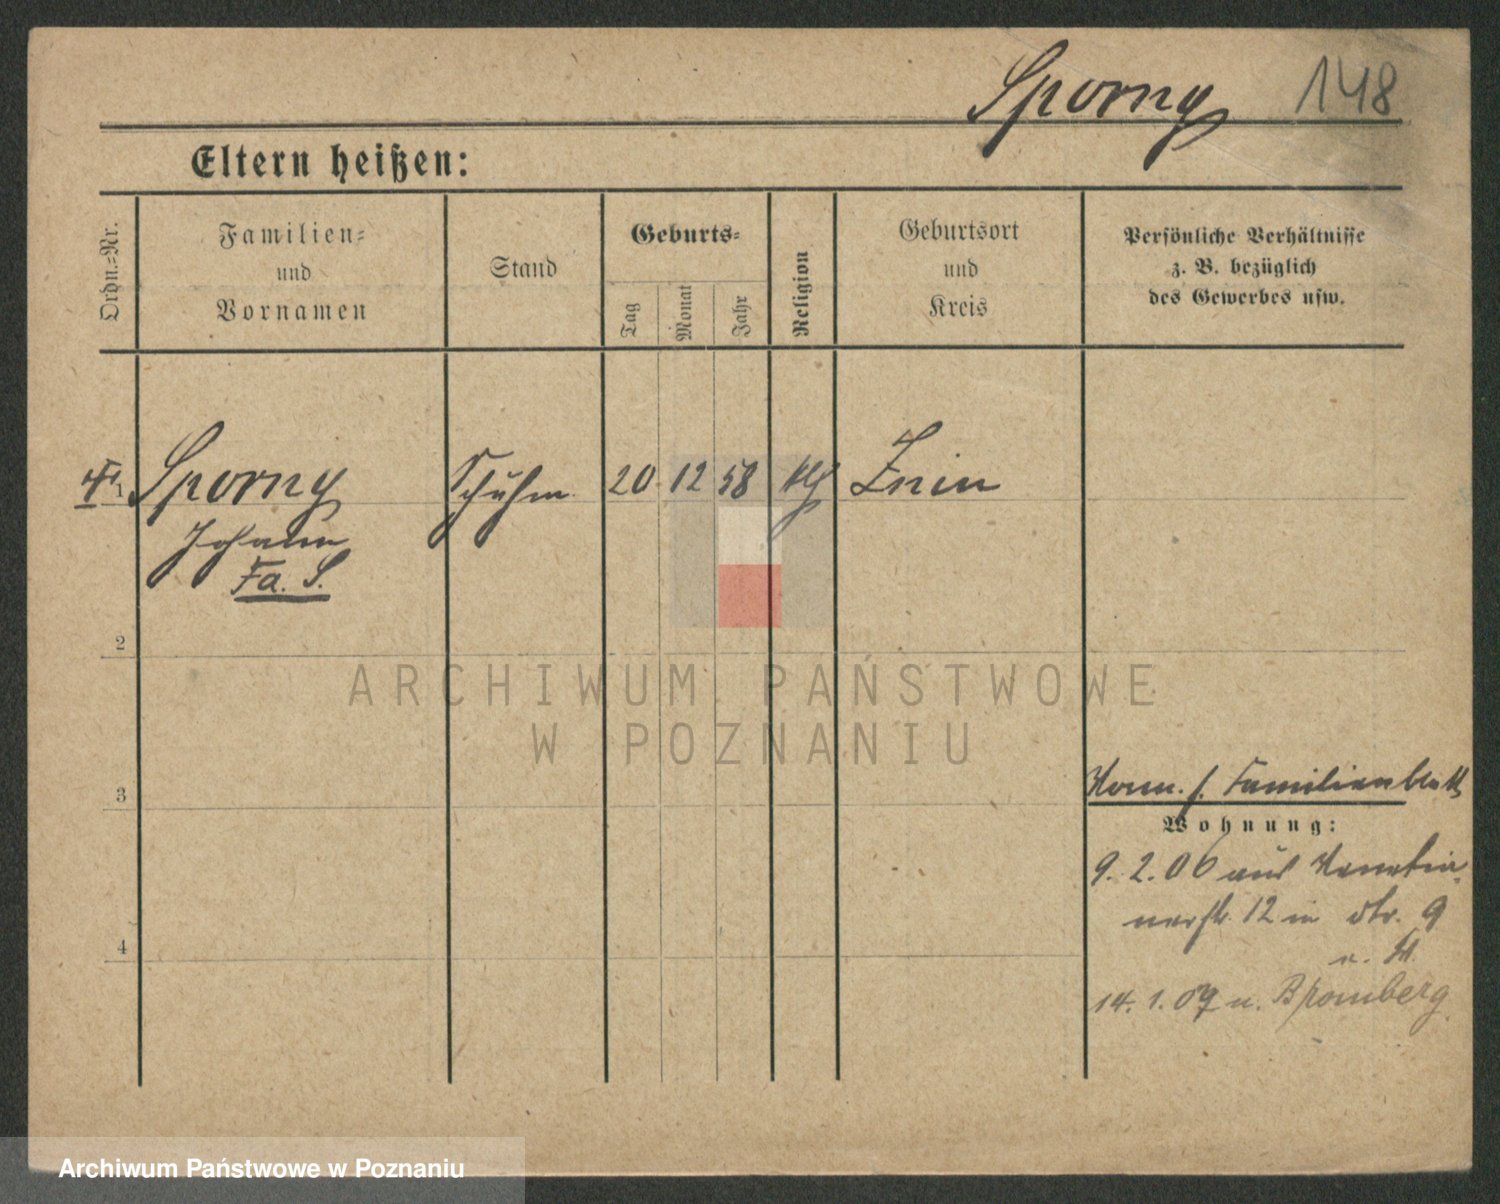 Sporny 148
Eltern heißen:
Ordn.=Nr.
Familien=
und
Vornamen
Stand
Geburts=
Tag
Monat
Jahr
Religion
Geburtsort
und
Kreis
Persönliche Verhältnisse
z. B. bezüglich
des Gewerbes usw.
1 Sporny Schuhm. 20 12 58 kth Znin
Johann
Fa. S.
2
3
4
ARCHIWUM PAŃSTWOWE
W POZNANIU
f. Familienblatt
Wohnung:
9. 2. 06 aus Venetia-
nerstr. 12 in str. 9
14. 1. 09 n. Bromberg
Archiwum Państwowe w Poznaniu